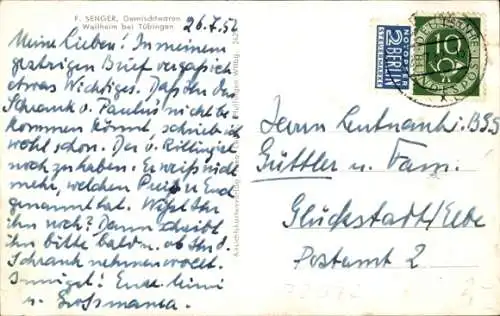 F. SENGER, Gemischtwaren
Weilheim bei Tübingen
26.7.52
Meine Lieben! In meinem
gestrigen Brief vergaß ich
etwas Wichtiges. Daß Ihr den
Schrank v. Paulus nicht be
kommen könnt, schrieb ich
wohl schon. Der v. Rillingist
noch zu haben. Er weiß nicht
mehr, welchen Preis er Euch
genannt hat. Wißt Ihr
ihn noch? Dann schreibt
ihn bitte bald u. ob Ihr d.
Schrank nehmen wollt.
Innigst! Eure Mimi
u. Grossmama.
NOTOPFER
2 BERLIN
STEUERMARKE
DEUTSCHE BUNDESPOST
10
Herrn Leutnant i. BGS
Güttler u. Fam.
Glückstadt/Elbe
Postamt 2